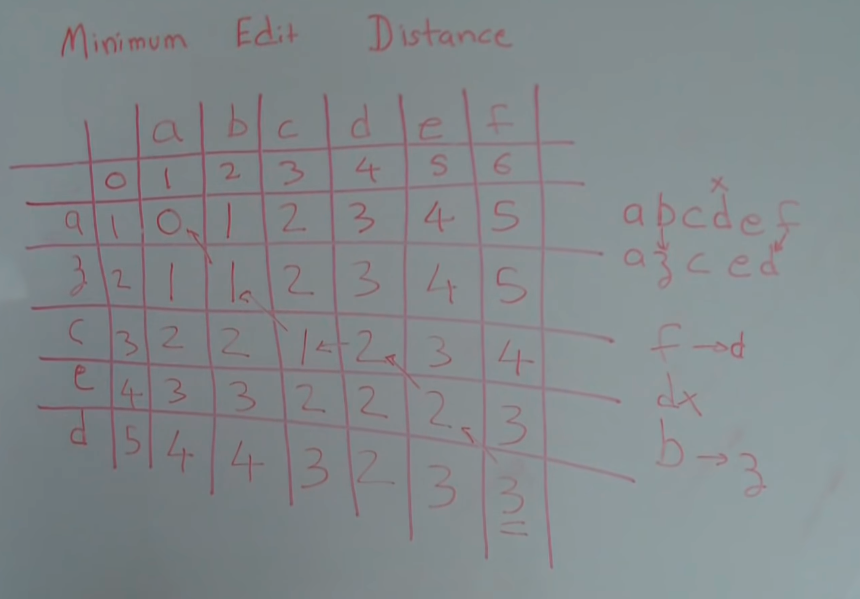 Minimum Edit Distance
a b c d e f
0 1 2 3 4 5 6
a 1 0 1 2 3 4 5
z 2 1 1 2 3 4 5
c 3 2 2 1 2 3 4
e 4 3 3 2 2 2 3
d 5 4 4 3 2 3 3
x
abcdef
azced
f→d
dx
b→z